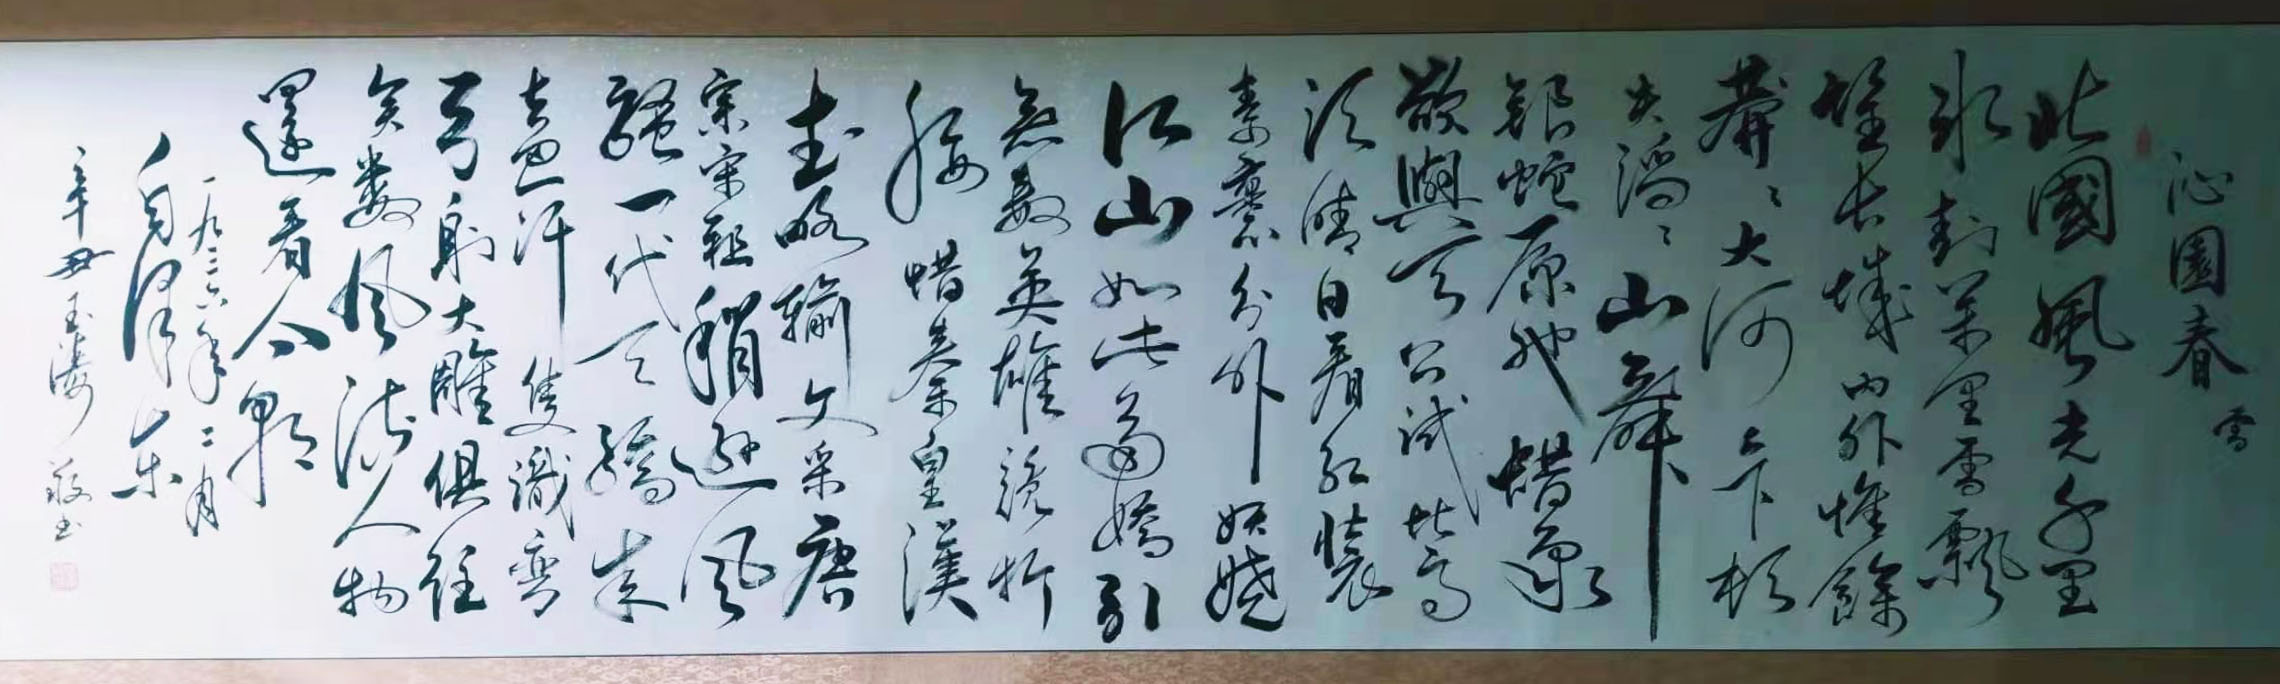 沁園春
雪
北國風光千里
冰封萬里雪飄
望长城内外惟餘
莽々大河上下顿
失滔々山舞
銀蛇原驰蜡象
欲與天公试比高
须晴日看红装
素裹分外妖娆
江山如此多嬌引
無數英雄競折
腰惜秦皇漢
武略输文采唐
宗宋祖稍逊风
騷一代天骄成
吉思汗隻識彎
弓射大雕俱往
矣数风流人物
還看今朝
一九三六年二月
毛泽东
辛丑玉涛敬书